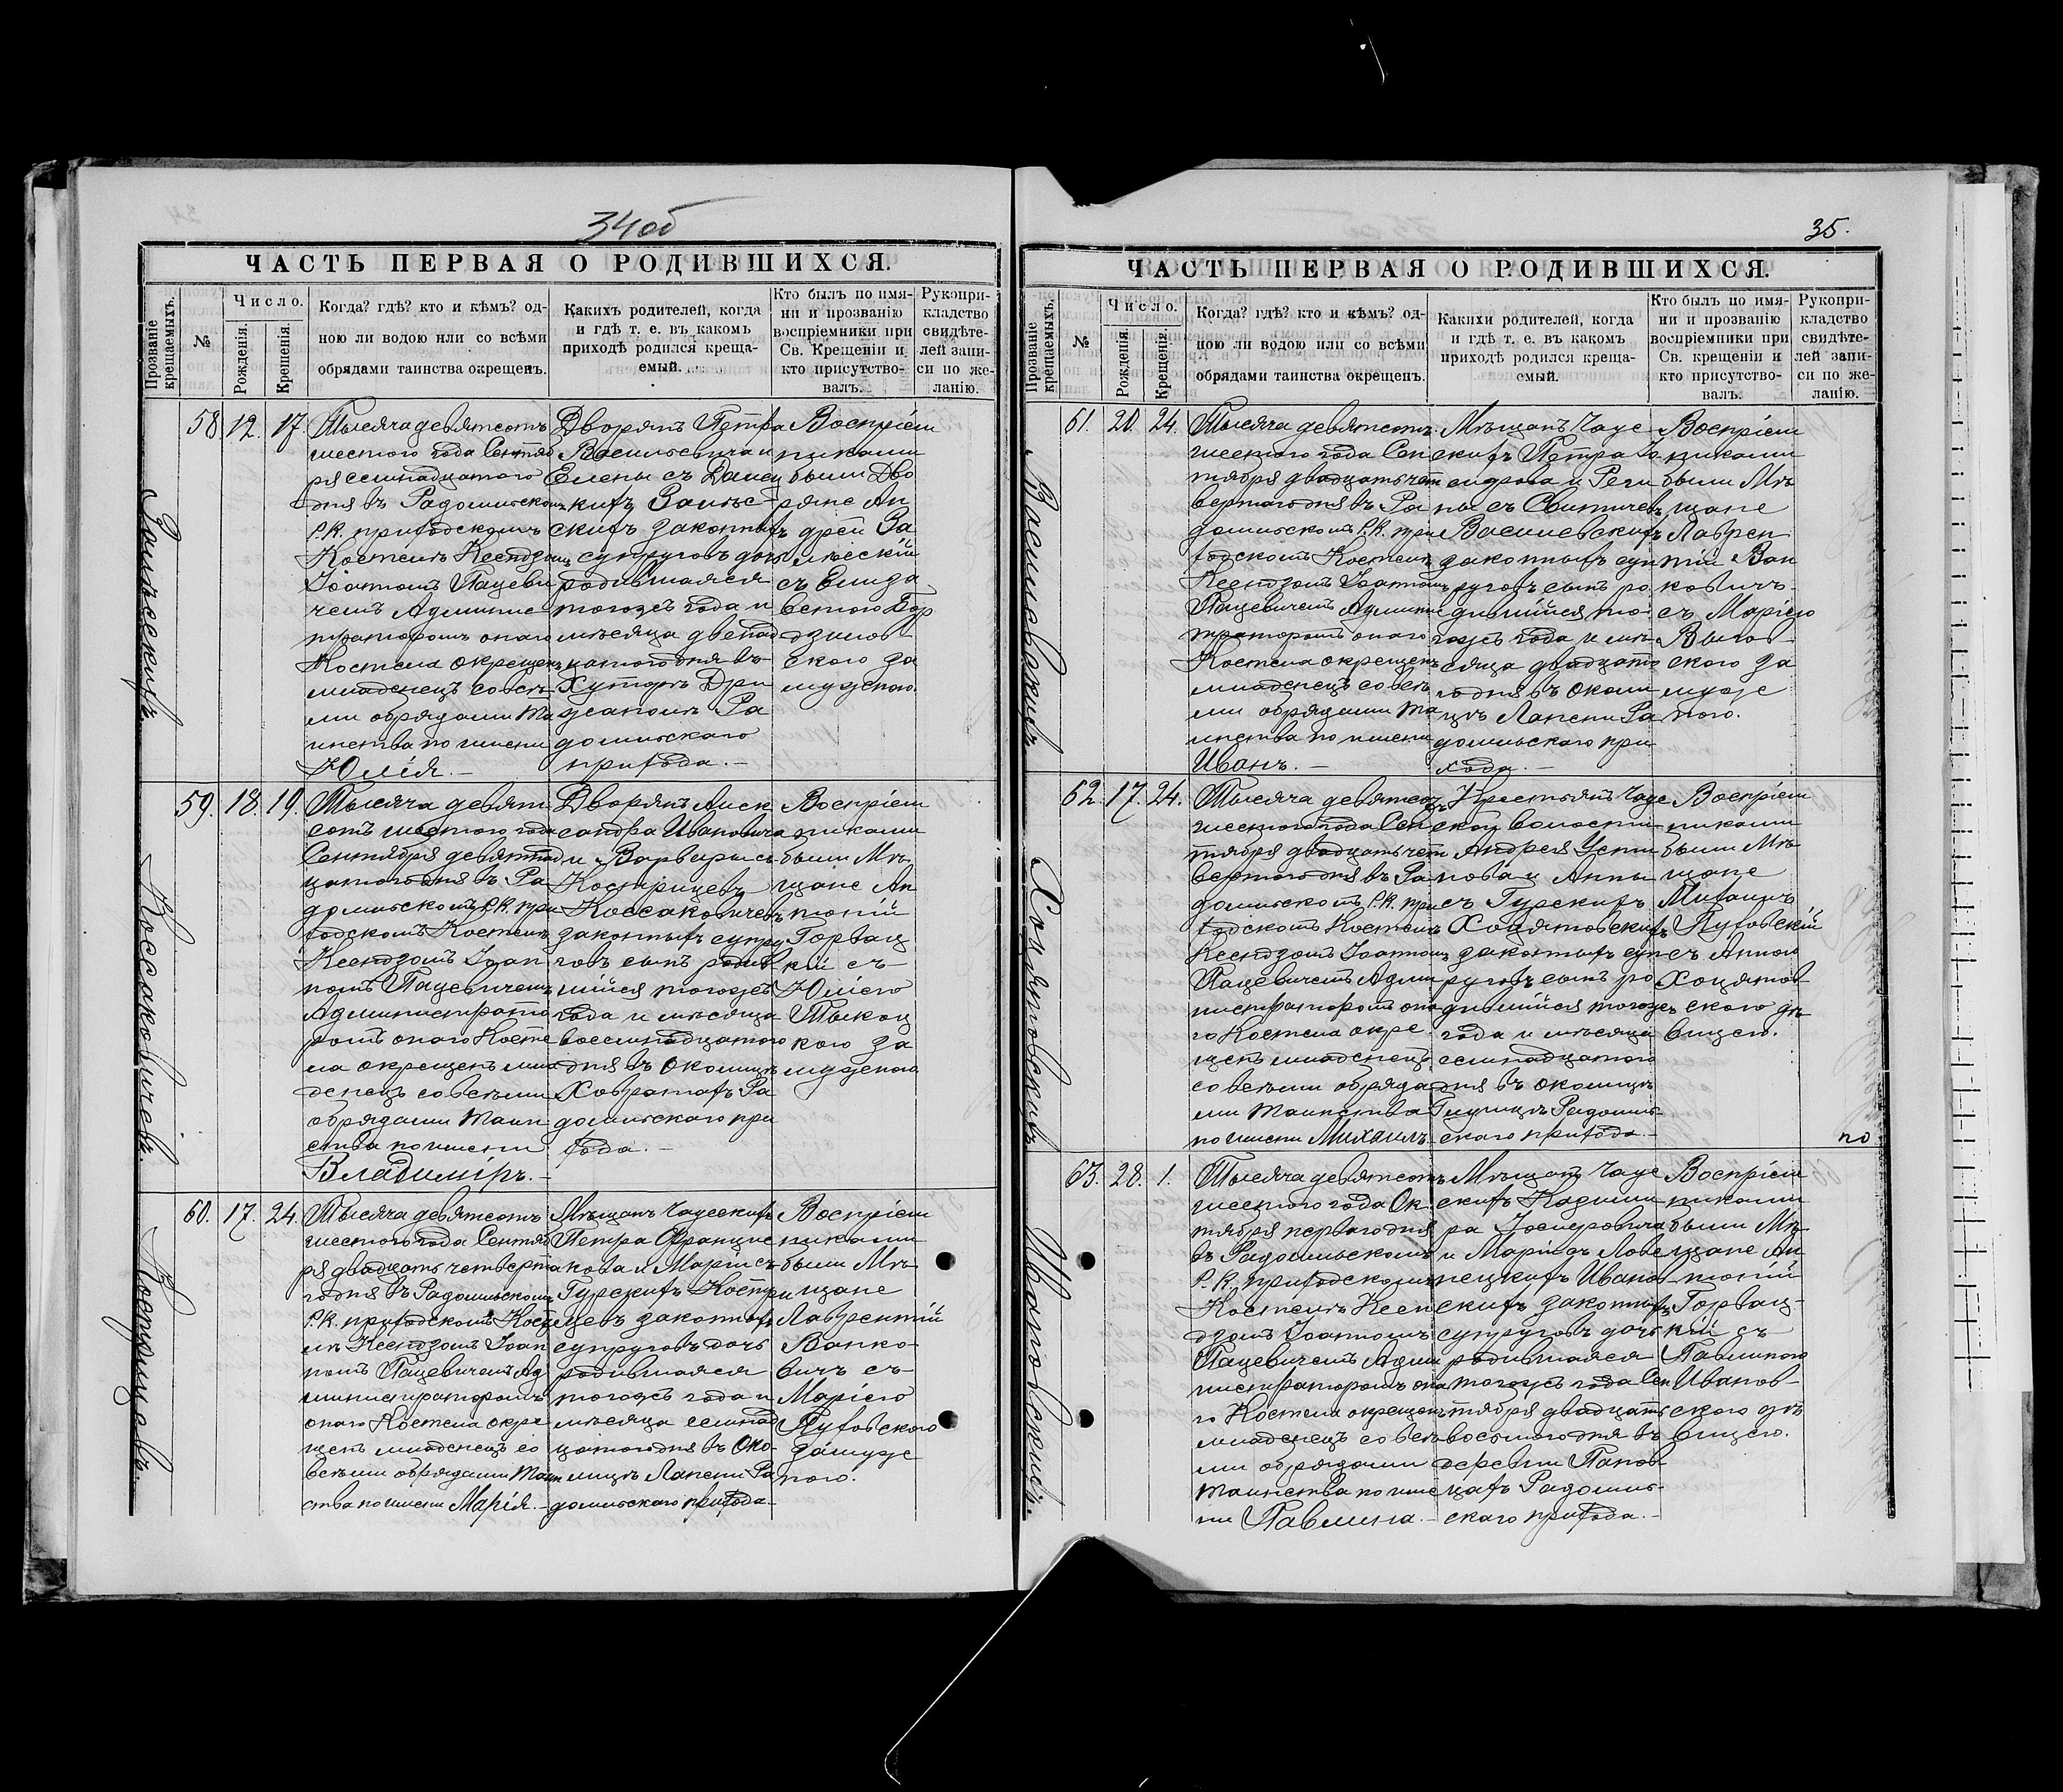 34 об
ЧАСТЬ ПЕРВАЯ О РОДИВШИХСЯ.
Прозваніе крещаемыхъ.
№
Число.
Рожденія.
Крещенія.
Когда? гдѣ? кто и кѣмъ? од-
ною ли водою или со всѣми
обрядами таинства окрещенъ.
Какихъ родителей, когда
и гдѣ т. е. въ какомъ
приходѣ родился креща-
емый.
Кто былъ по имя-
ни и прозванію
воспріемники при
Св. Крещеніи и
кто присутство-
валъ.
Рукопри-
кладство
свидѣте-
лей запи-
си по же-
ланію.
58 12. 17.
Тысяча девятсотъ
шестого года Сентяб
ря семнадцатого
дня въ Радомльскомъ
Р.К. приходскомъ
Костелѣ Ксендзомъ
Іоанномъ Пацеви
чемъ Админис
траторомъ онаго
Костела окрещенъ
младенецъ со всѣ
ми обрядами Та
инства по имени
Юлія.
Дворянъ Петра
Васильевича и
Елены съ
кихъ Залѣс-
скихъ законныхъ
супруговъ дочь
родившаяся
тогоже года и
мѣсяца двенад
цатого дня въ
Хуторѣ Дри
жаполѣ Ра
домльскаго
прихода.
Воспріем
никами
были Дво
ряне Ан
дрей За
лѣсскій
съ Елиза
ветою
дзилов
ского за
мужною.
59. 18. 19.
Коссаковичевъ.
Тысяча девят
сотъ шестого года
Сентября девятнад
цатого дня въ Ра
домльскомъ Р.К. при
ходскомъ Костелѣ
Ксендзомъ Іоан
номъ Пацевичемъ
Администрато
ромъ онаго Косте
ла окрещенъ мла
денецъ со всѣми
обрядами Таин
ства по имени
Владиміръ.
Дворянъ Алек
сандра Ивановича
и Варвары съ
Кострицевъ
Коссаковичевъ
законныхъ супру
говъ сынъ родив
шійся тогожъ
года и мѣсяца
восемнадцатого
дня въ Околицѣ
Ховратахъ Ра
домльскаго при
хода.
Воспріем
никами
были Мѣ
щане Ан
тоній
Горвац
кій съ
Юліею
Тыкоц
кого за
мужною
60. 17. 24.
Кострицевъ.
Тысяча девятсотъ
шестого года Сентяб
ря двадцать четверта
го дня въ Радомльскомъ
Р.К. приходскомъ Косте
лѣ Ксендзомъ Іоан
номъ Пацевичемъ Ад
министраторомъ
онаго Костела окре
щенъ младенецъ со
всѣми обрядами Таин
ства по имени Марія.
Мѣщанъ Чаусскихъ
Петра Францис
кова и Маріи съ
Гурскихъ Костри
цевъ законныхъ
супруговъ дочь
родившаяся
тогожъ года и
мѣсяца семнад
цатого дня въ Око-
лицѣ Лапени Ра
домльскаго прихода
Воспріем
никами
были Мѣ
щане
Лаврентій
Ванко-
вичъ съ
Маріею
Пуховского
замуж
ного.
35.
ЧАСТЬ ПЕРВАЯ О РОДИВШИХСЯ.
Прозваніе крещаемыхъ.
№
Число.
Рожденія.
Крещенія.
Когда? гдѣ? кто и кѣмъ? од-
ною ли водою или со всѣми
обрядами таинства окрещенъ.
Какихи родителей, когда
и гдѣ т. е. въ какомъ
приходѣ родился креща-
емый.
Кто былъ по имя-
ни и прозванію
воспріемники при
Св. крещеніи и
кто присутство-
валъ.
Рукопри-
кладство
свидѣте-
лей запи-
си по же-
ланію.
61. 20. 24.
Василевскихъ
Тысяча девятсотъ
шестого года Сен
тября двадцать чет
вертого дня въ Ра
домльскомъ Р.К. при
ходскомъ Костелѣ
Ксендзомъ Іоанномъ
Пацевичемъ Админи
траторомъ онаго
Костела окрещенъ
младенецъ со всѣ
ми обрядами Та
инства по имени
Иванъ.
Мѣщанъ Чаус
скихъ Петра
и Реги
ны съ
Василевскихъ
законныхъ суп
руговъ сынъ ро
дившійся то-
гожъ года и мѣ
сяца двадцато
го дня въ Околи
цѣ Лапени Ра
домльскаго при
хода.
Воспріем
никами
были Мѣ
щане
Лаврен
тій Ван
ковичъ
съ Маріею
ского за
муж
ного.
62. 17. 24.
Хоцятовскихъ
Тысяча девятсотъ
шестого года Сен
тября двадцать чет
вертого дня въ Ра
домльскомъ Р.К. при
ходскомъ Костелѣ
Ксендзомъ Іоанномъ
Пацевичемъ Адми
нистраторомъ она
го Костела окре
щенъ младенецъ
со всѣми обряда
ми Таинства
по имени Михаилъ
Крестьянъ Чаус
ской волости
Андрея Усти
нова и Анны
съ Гурскихъ
Хоцятовскихъ
законныхъ суп
руговъ сынъ ро
дившійся тогожъ
года и мѣсяца
семнадцатого
дня въ околицѣ
Радомль
скаго прихода.
Воспріем
никами
были Мѣ
щане
Михаилъ
Пуховскій
съ Анною
Хоцятов
ского дѣ
вицею.
по
63. 28. 1.
Ивановскихъ.
Тысяча девятсотъ
шестого года Ок
тября перваго дня
въ Радомльскомъ
Р.К. приходскомъ
Костелѣ Ксен
дзомъ Іоанномъ
Пацевичемъ Адми
нистраторомъ она
го Костела окрещенъ
младенецъ со всѣ
ми обрядами
Таинства по име
ни Павлина.
Мѣщанъ Чаус
скихъ Казими
ра Іосифовича
и Маріи
Иванов
скихъ законныхъ
супруговъ дочь
родившаяся
тогожъ года Сен
тября двадцать
восьмого дня въ
деревни Панов
цахъ Радомль
скаго прихода.
Воспріем
никами
были Мѣ
щане Ан
тоній
Горвац-
кій съ
Павлиною
Иванов-
ского дѣ
вицею.